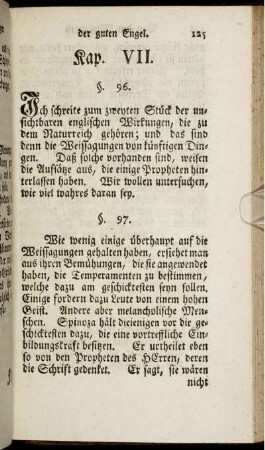 der guten Engel. 125
Kap. VII.
§. 96.
Ich schreite zum zweyten Stück der un-
sichtbaren englischen Wirkungen, die zu
dem Naturreich gehören; und das sind
denn die Weissagungen von künftigen Din-
gen. Daß solche vorhanden sind, weisen
die Aufsätze aus, die einige Propheten hin-
terlassen haben. Wir wollen untersuchen,
wie viel wahres daran sey.
§. 97.
Wie wenig einige überhaupt auf die
Weissagungen gehalten haben, ersiehet man
aus ihren Bemühungen, die sie angewendet
haben, die Temperamenten zu bestimmen,
welche dazu am geschicktesten seyn sollen.
Einige fordern dazu Leute von einem hohen
Geist. Andere aber melancholische Men-
schen. Spinoza hält diejenigen vor die ge-
schicktesten dazu, die eine vortreffliche Ein-
bildungskraft besitzen. Er urtheilet eben
so von den Propheten des HErren, deren
die Schrift gedenket. Er sagt, sie wären
nicht